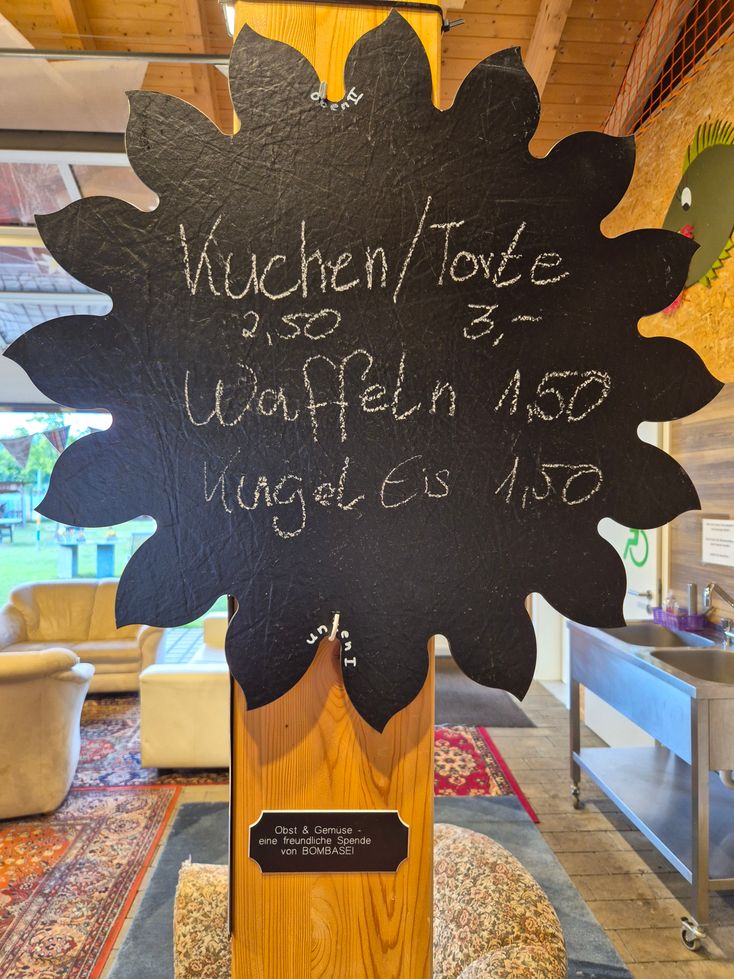 oben II
Kuchen/Torte
2,50 3,-
Waffeln 1,50
Kugel Eis 1,50
unten I
Obst & Gemüse -
eine freundliche Spende
von BOMBASEI